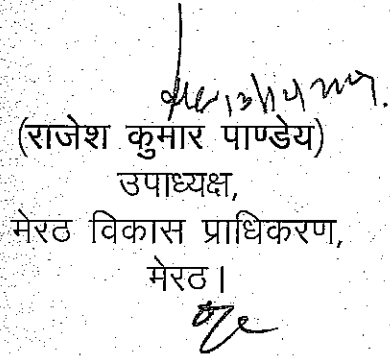 (राजेश कुमार पाण्डेय)
उपाध्यक्ष,
मेरठ विकास प्राधिकरण,
मेरठ।